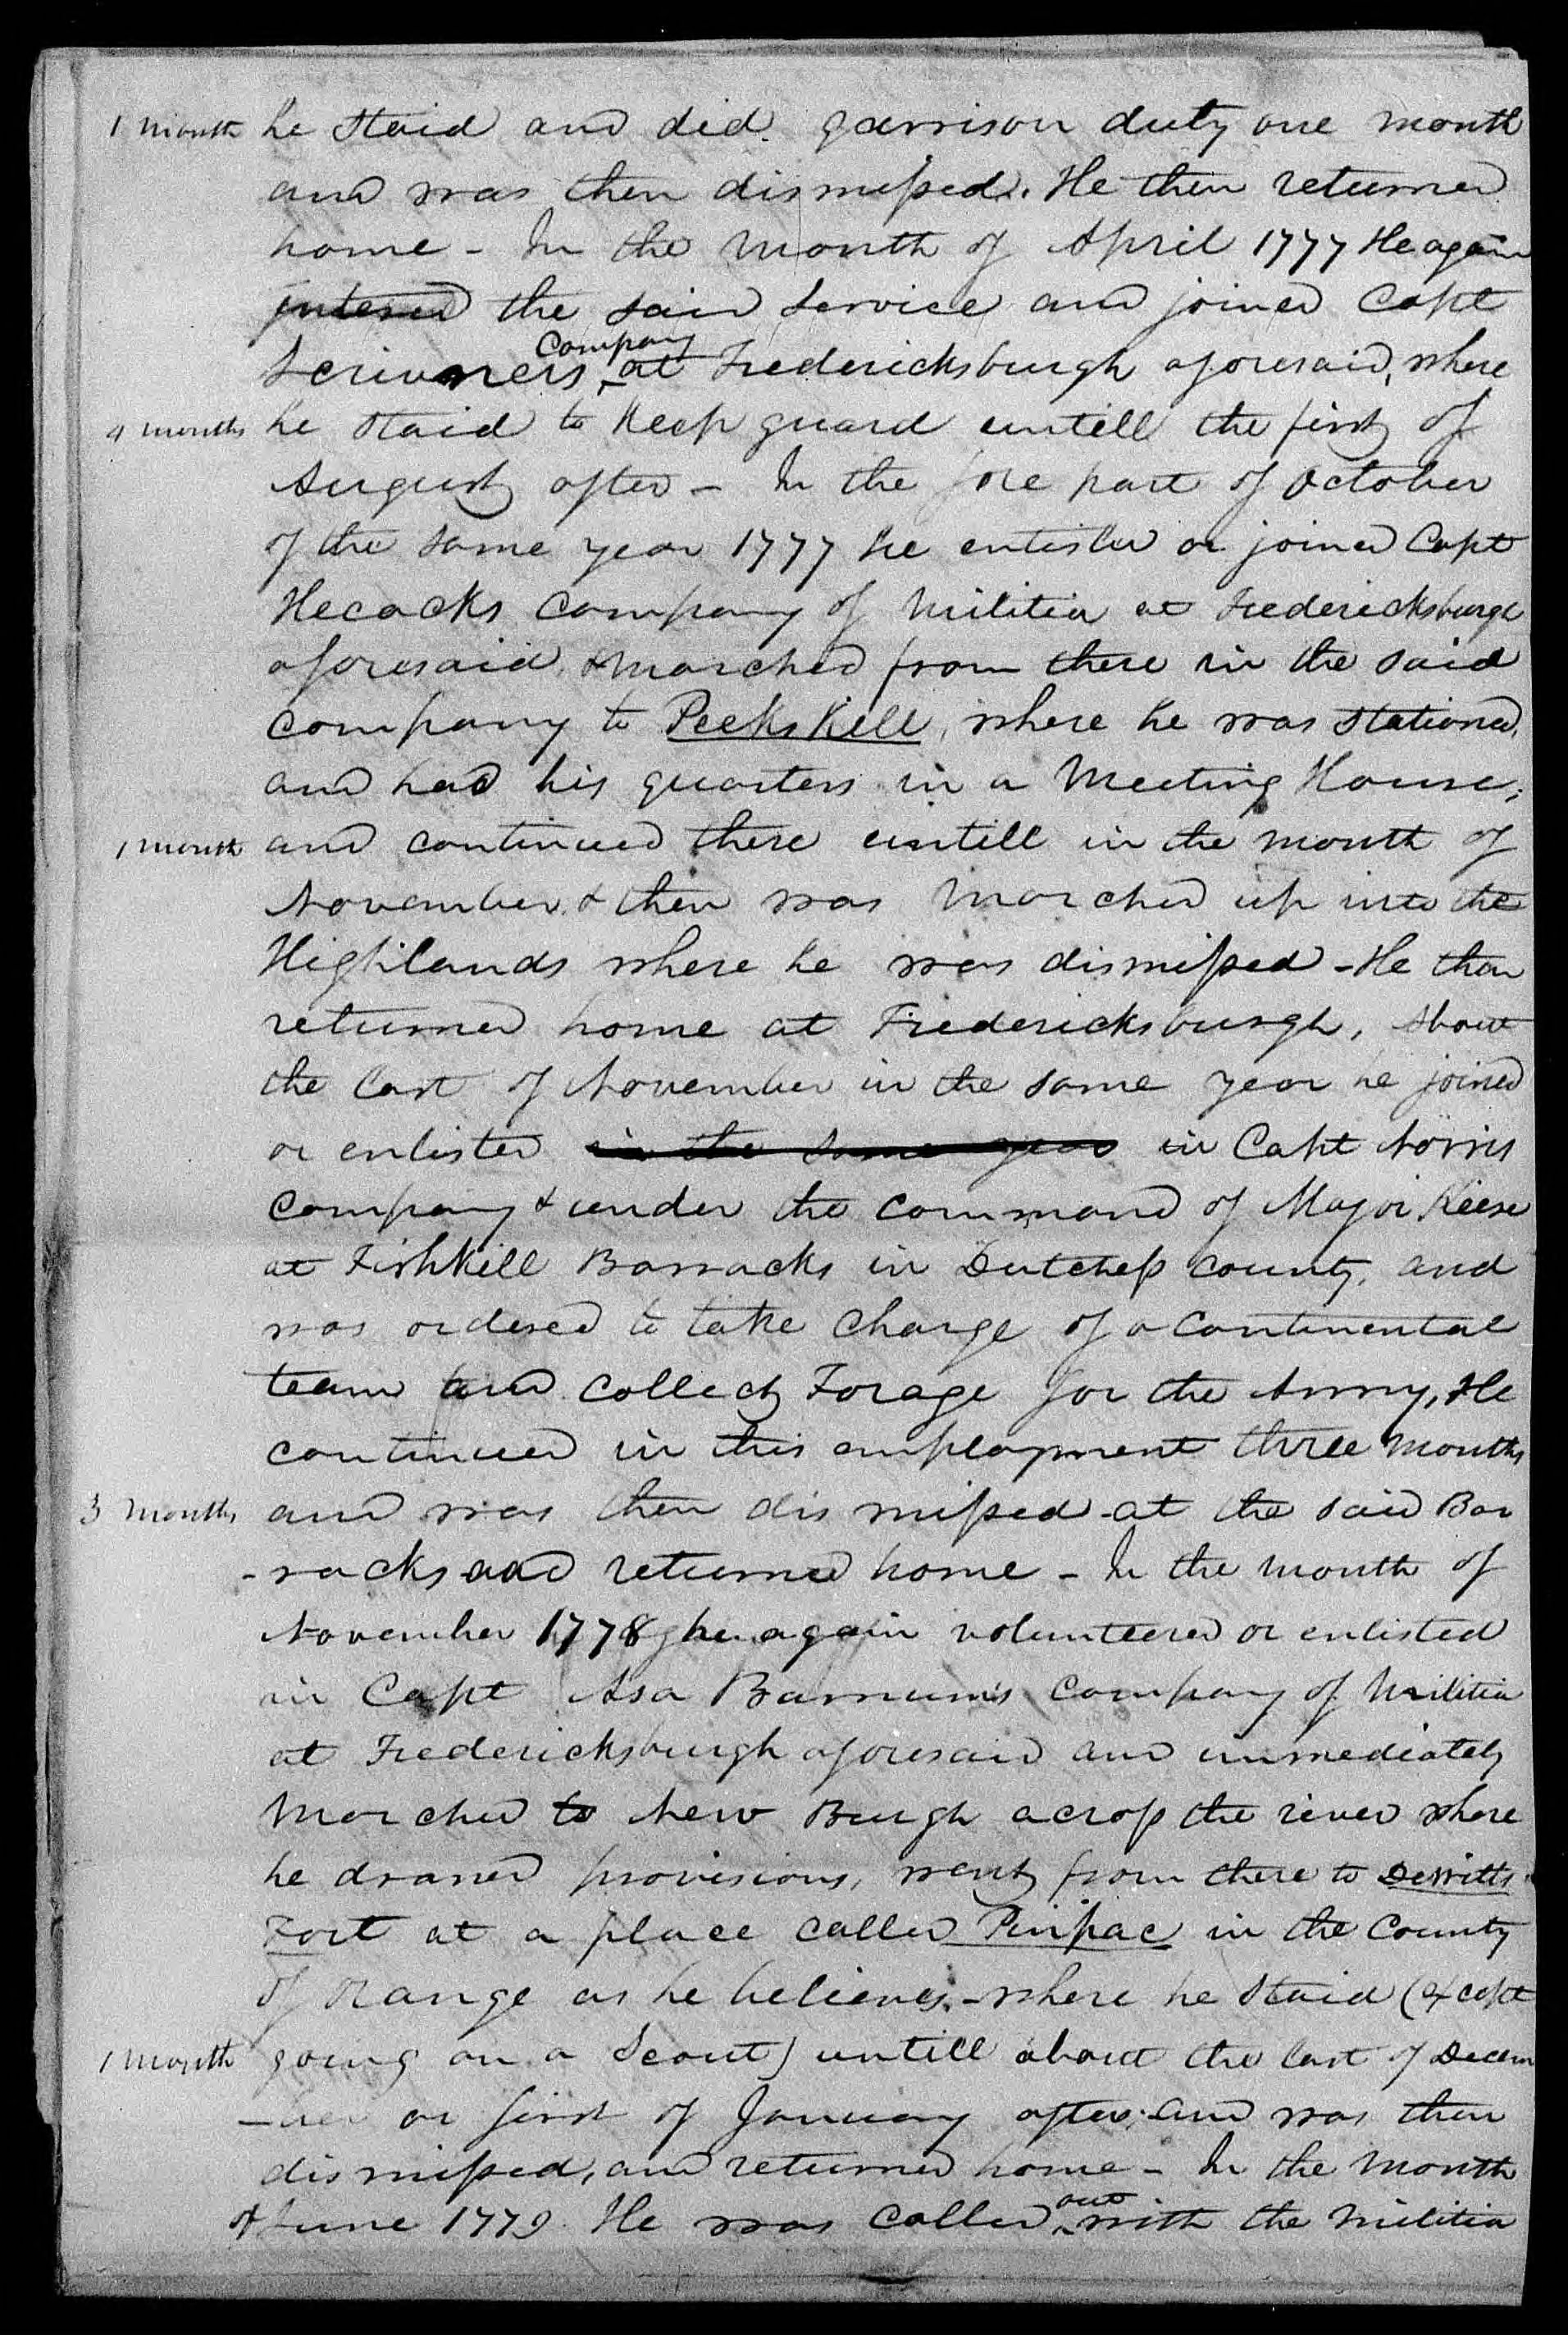 1 month he staid and did garrison duty one month
and was then dismissed. He then returned
home - In the month of April 1777 He again
entered the said service and joined Capt
Company
Scrivners ^ at Fredericksburgh aforesaid, where
4 months he staid to keep guard untill the first of
August after - In the fore part of October
of the same year 1777 he entisled or joined Capt
Hecocks company of militia at Fredericksburgh
aforesaid, & marched from there in the said
company to Peeks Kill, where he was stationed,
and had his quarters in a Meeting House,
1 month and continued there untill in the month of
November & then was marched up into the
Highlands where he was dismissed - He than
returned home at Fredericksburgh, about
the last of November in the same year he joined
or enlisted in the same year in Capt Norris
company & under the command of Major Keese
at Fishkill Barracks in Dutchess county, and
was ordered to take charge of a continental
team and collect Forage for the Army, He
continued in this employment three months
3 months and was then dismissed at the said Bar
-racks and returned home - In the month of
November 1778 he again volunteered or enlisted
in Capt Asa Barnum's company of militia
at Fredericksburgh aforesaid and immediately
marched to New Burgh across the river where
he drawed provisions, went from there to Dewitts
Fort at a place called Pinpac in the County
of orange as he believes, - where he staid (except
1 month going on a scout) untill about the last of Decem
-ber or first of January after; and was then
dismissed, and returned home - In the month
of June 1779. He was called ^ with the militia
out